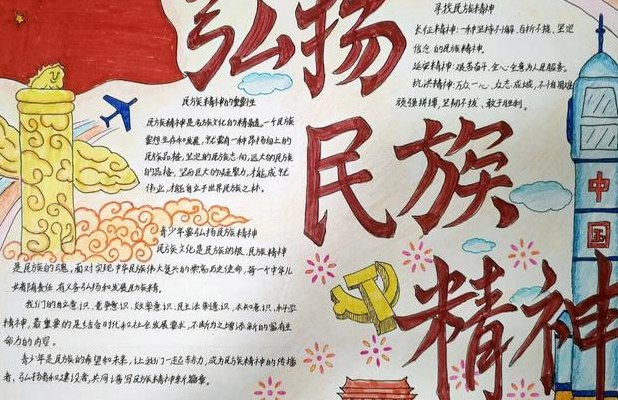 弘扬
民族
精神
寻找民族精神
长征精神:一种坚持不懈、百折不挠、坚定
信念的民族精神。
延安精神:艰苦奋斗、全心全意为人民服务。
抗洪精神:万众一心、众志成城、不怕困难
顽强拼搏、坚韧不拔、敢于胜利。
民族精神的重要性
民族精神是名族文化的精髓。一个民族
要想生存和发展,就要有一种昂扬向上的
民族品格,坚定的民族志向,远大的民族
的品格,坚而巨大的凝聚力,才能成就
伟业,才能自立于世界民族之林。
青少年要弘扬民族精神
民族文化是民族的根,民族精神
是民族的魂。面对实现中华民族伟大复兴的崇高历史使命,每一个中华儿
女都有责任、有义务弘扬和发展民族精。
我们的自立意识、竞争意识、效率意识、民主法制意识、
精神,最重要的是结合时代和社会发展要求,不断为之增添新的富有生
命力的内容。
青少年是民族的希望和未来,让我们一起努力,成为民族精神的传播
者、弘扬者和建设者,共同谱写民族精神新篇章。
中国